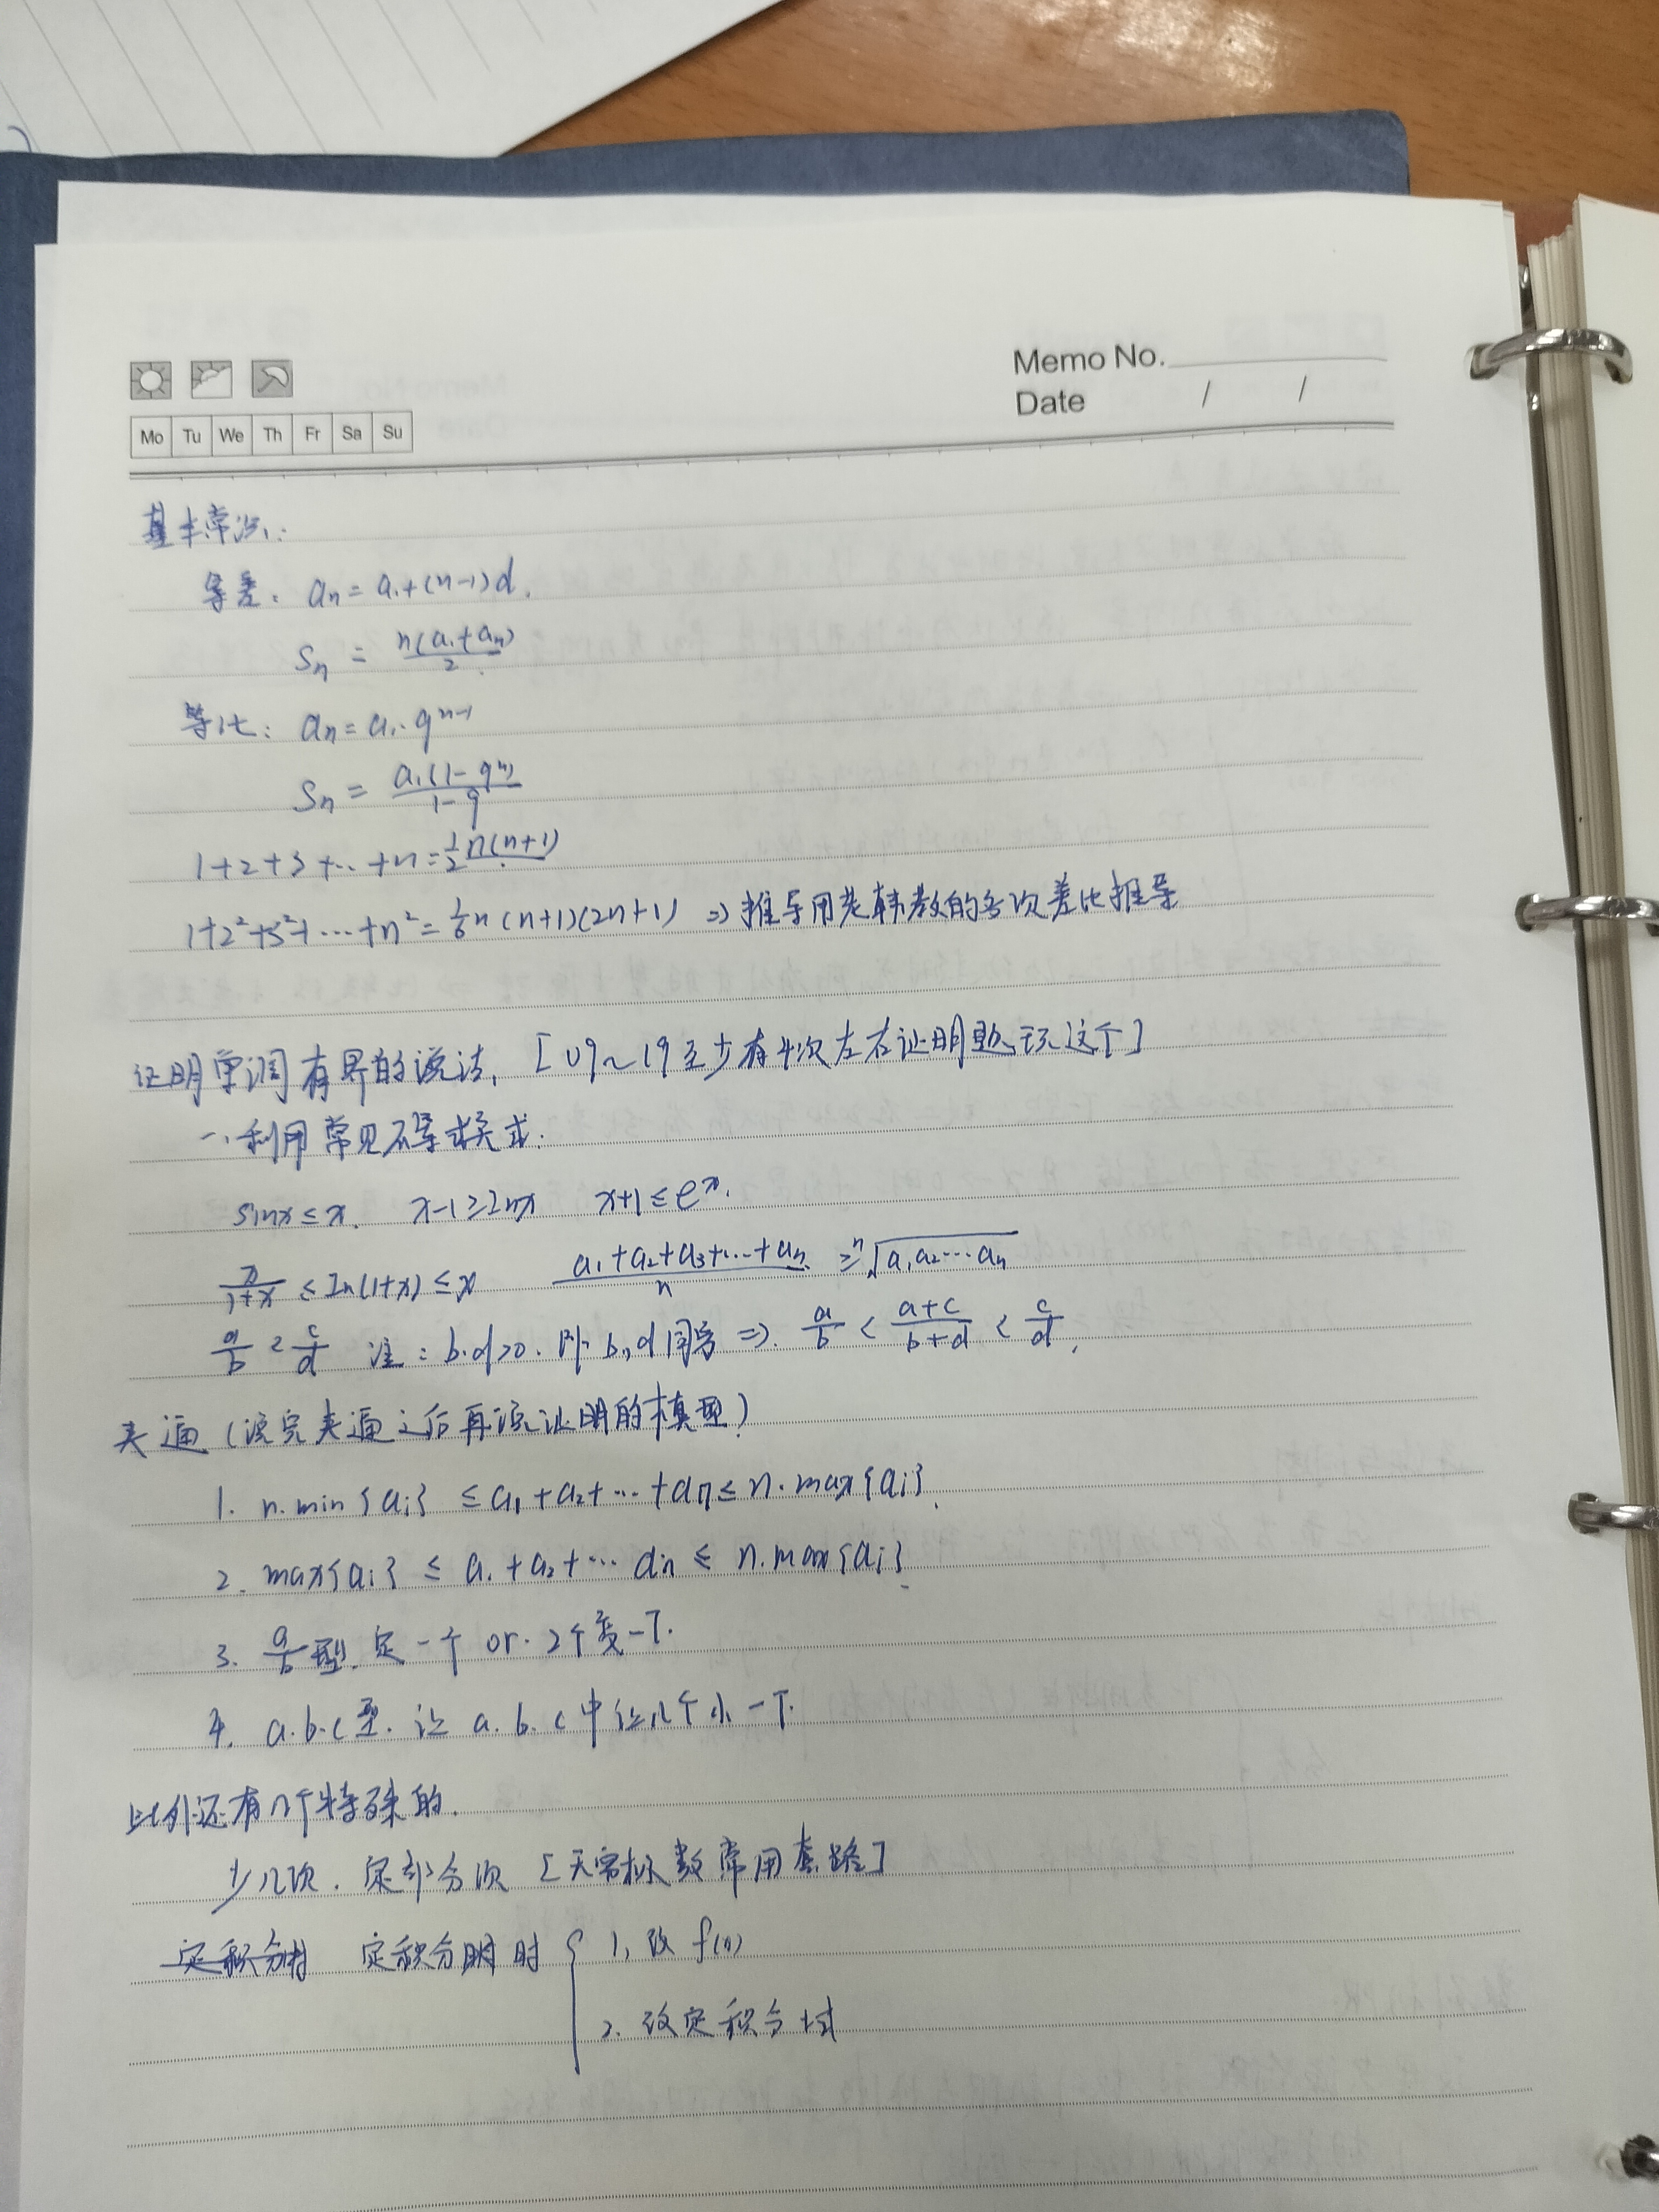 Memo No.
Date / /
Mo Tu We Th Fr Sa Su
基本常识:
等差: an = a1+(n-1)d.
Sn = n(a1+an)/2
等比: an = a1·q^(n-1)
Sn = a1(1-q^n)/(1-q)
1+2+3+…+n = 1/2 n(n+1)
1+2²+3²+…+n² = 1/6 n(n+1)(2n+1) ⇒ 推导用老韩教的多次差比推导
证明单调有界的说法, [09~19至少有4次左右证明题玩这个]
一、利用常见不等式
sinx ≤ x. x-1 ≥ lnx x+1 ≤ e^x.
x/(1+x) ≤ ln(1+x) ≤ x (a1+a2+a3+…+an)/n ≥ ⁿ√(a1a2…an)
a/b < c/d 注: b·d>0. 即 b, d同号 ⇒ a/b < (a+c)/(b+d) < c/d.
夹逼(说完夹逼之后再说证明的模型)
1. n·min{ai} ≤ a1+a2+…+an ≤ n·max{ai}.
2. max{ai} ≤ a1+a2+…an ≤ n·max{ai}.
3. a/b型. 定一个 or. 2个变一下.
4. a·b·c型. 让 a. b. c中让几个小一下.
此外还有几个特殊的.
少几项. 定部分项 [无穷标数常用套路]
定积分时 定积分明时 { 1. 改 f(x)
2. 改定积分域